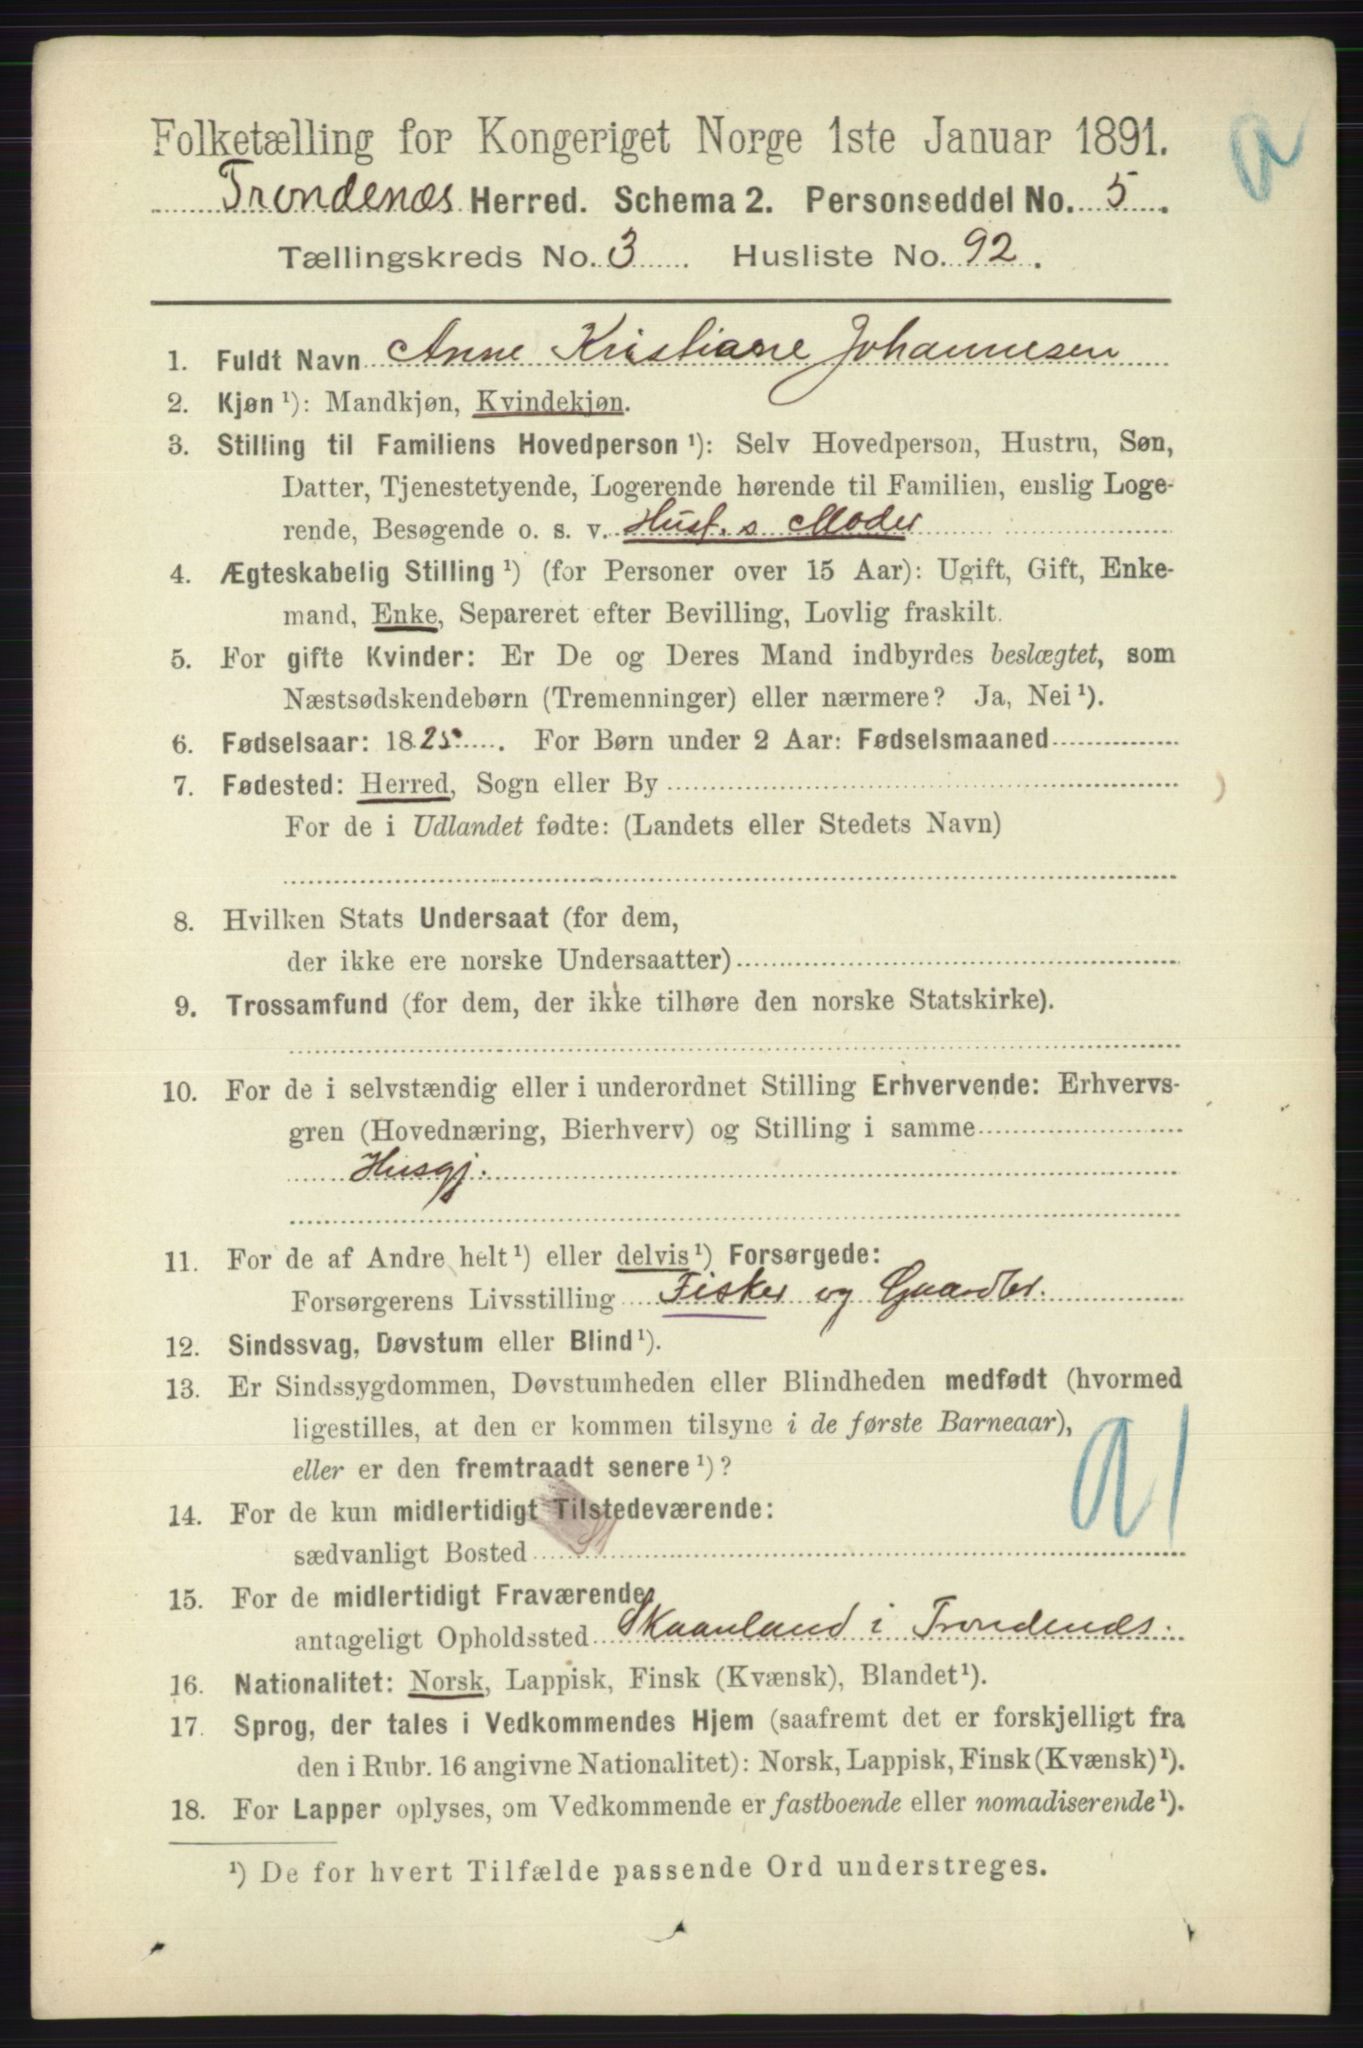 Folketælling for Kongeriget Norge 1ste Januar 1891.
Trondenæs Herred. Schema 2. Personseddel No. 5.
Tællingskreds No. 3 Husliste No. 92.
a
1. Fuldt Navn Anne Kristiane Johannesen
2. Kjøn ¹): Mandkjøn, Kvindekjøn.
3. Stilling til Familiens Hovedperson ¹): Selv Hovedperson, Hustru, Søn,
Datter, Tjenestetyende, Logerende hørende til Familien, enslig Loge-
rende, Besøgende o. s. v. Husf.s Moder
4. Ægteskabelig Stilling ¹) (for Personer over 15 Aar): Ugift, Gift, Enke-
mand, Enke, Separeret efter Bevilling, Lovlig fraskilt.
5. For gifte Kvinder: Er De og Deres Mand indbyrdes beslægtet, som
Næstsødskendebørn (Tremenninger) eller nærmere? Ja, Nei ¹).
6. Fødselsaar: 1825. For Børn under 2 Aar: Fødselsmaaned
7. Fødested: Herred, Sogn eller By
For de i Udlandet fødte: (Landets eller Stedets Navn)
8. Hvilken Stats Undersaat (for dem,
der ikke ere norske Undersaatter)
9. Trossamfund (for dem, der ikke tilhøre den norske Statskirke).
10. For de i selvstændig eller i underordnet Stilling Erhvervende: Erhvervs-
gren (Hovednæring, Bierhverv) og Stilling i samme
Husgj.
11. For de af Andre helt ¹) eller delvis ¹) Forsørgede:
Forsørgerens Livsstilling Fisker og Gaardbr.
12. Sindssvag, Døvstum eller Blind ¹).
13. Er Sindssygdommen, Døvstumheden eller Blindheden medfødt (hvormed
ligestilles, at den er kommen tilsyne i de første Barneaar),
eller er den fremtraadt senere ¹)?
a1
14. For de kun midlertidigt Tilstedeværende:
sædvanligt Bosted
15. For de midlertidigt Fraværende
antageligt Opholdssted Skaanland i Trondenæs.
16. Nationalitet: Norsk, Lappisk, Finsk (Kvænsk), Blandet ¹).
17. Sprog, der tales i Vedkommendes Hjem (saafremt det er forskjelligt fra
den i Rubr. 16 angivne Nationalitet): Norsk, Lappisk, Finsk (Kvænsk) ¹).
18. For Lapper oplyses, om Vedkommende er fastboende eller nomadiserende ¹).
¹) De for hvert Tilfælde passende Ord understreges.